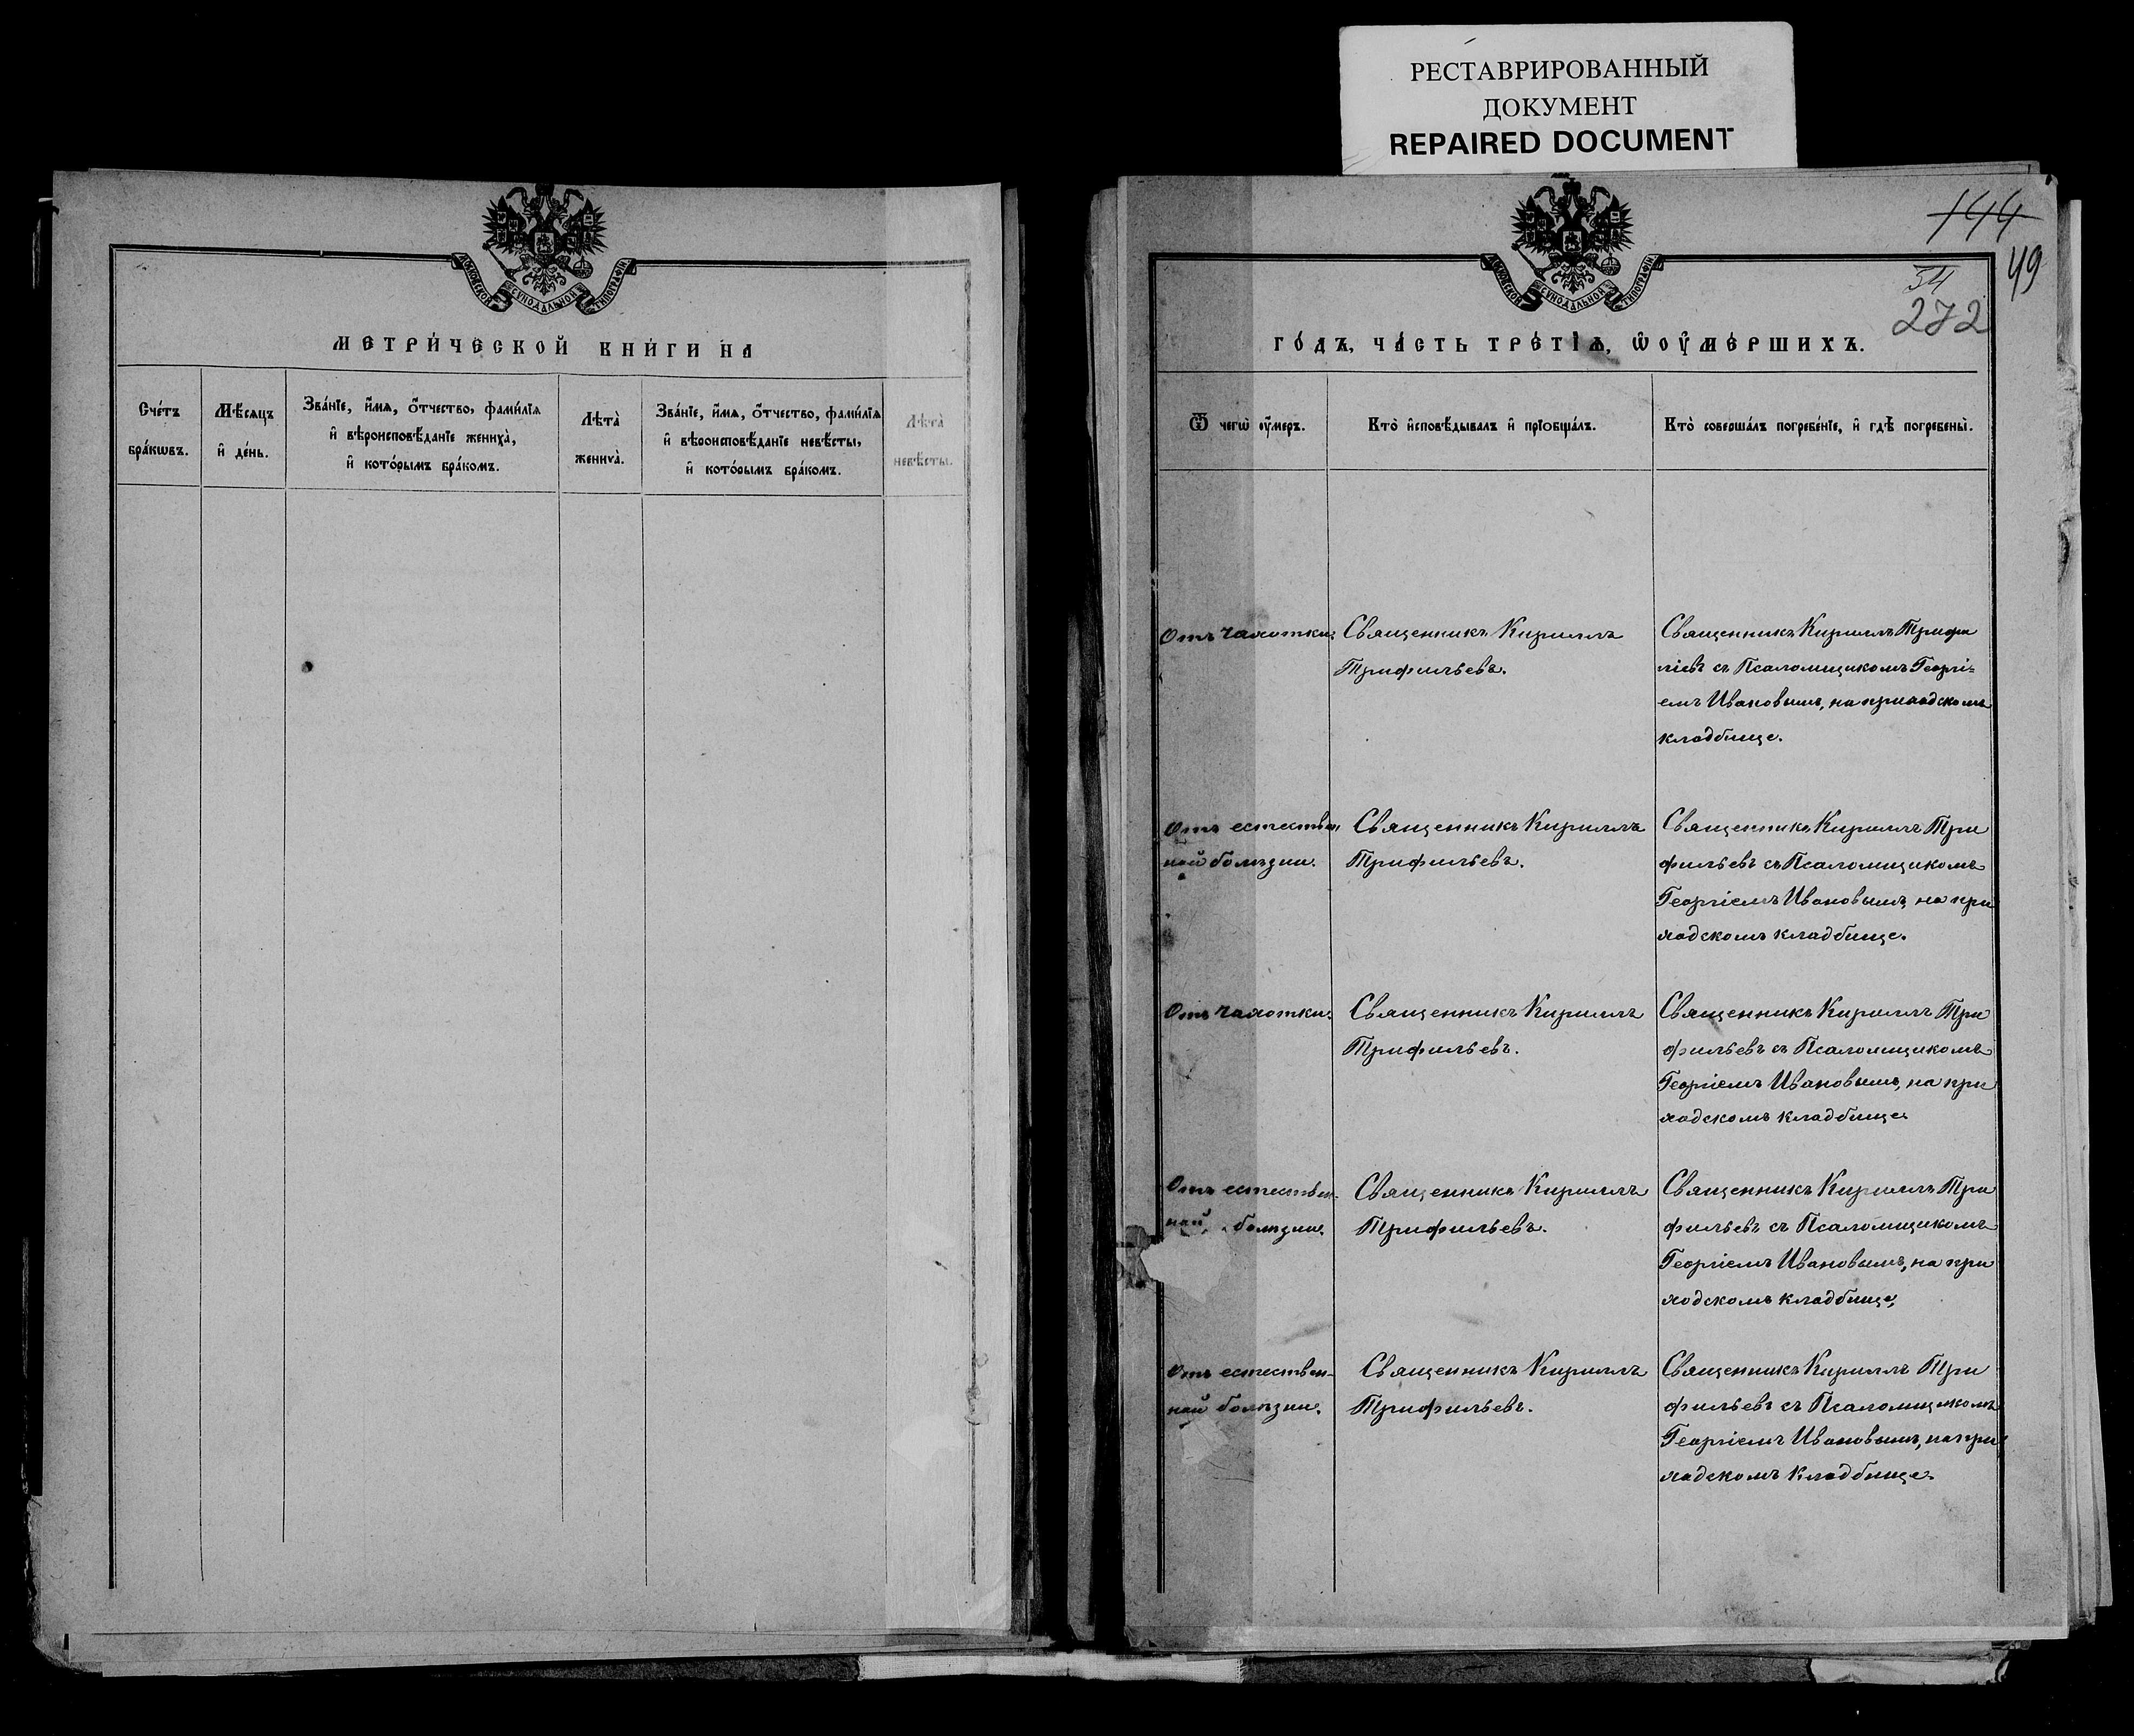 РЕСТАВРИРОВАННЫЙ
ДОКУМЕНТ
REPAIRED DOCUMENT
МОСКОВСКОЙ СѴНОДАЛЬНОЙ ТИПОГРАФІИ
МЕТРИ́ЧЕСКОЙ КНИ́ГИ НА
Сче́тъ
бра́кѡвъ.
Мѣ́сяцъ
и҆ де́нь.
Зва́нїе, и҆́мѧ, ѻ҆́тчество, фами́лїѧ
и҆ вѣроисповѣ́данїе жениха̀,
и҆ кото́рымъ бра́комъ.
Лѣта̀
жениха̀.
Зва́нїе, и҆́мѧ, ѻ҆́тчество, фами́лїѧ
и҆ вѣроисповѣ́данїе невѣ́сты,
и҆ кото́рымъ бра́комъ.
Лѣта̀
невѣ́сты.
144
49
54
272
МОСКОВСКОЙ СѴНОДАЛЬНОЙ ТИПОГРАФІИ
ГО́ДЪ, ЧА́СТЬ ТРЕ́ТЇѦ, Ѡ҆ ОУ҆МЕ́РШИХЪ.
Ѿ чегѡ̀ оу҆́меръ.
Кто̀ и҆сповѣ́дывалъ и҆ прїобща́лъ.
Кто̀ соверша́лъ погребе́нїе, и҆ гдѣ̀ погребены̀.
Отъ чахотки.
Священникъ Кириллъ
Трифильевъ.
Священникъ Кириллъ Трифи
ліевъ съ Псаломщикомъ Георгі=
емъ Ивановымъ, на приходскомъ
кладбище.
Отъ естествен
ной болѣзни.
Священникъ Кириллъ
Трифильевъ.
Священникъ Кириллъ Три
фильевъ съ Псаломщикомъ
Георгіемъ Ивановымъ, на при
ходскомъ кладбище.
Отъ чахотки.
Священникъ Кириллъ
Трифильевъ.
Священникъ Кириллъ Три
фильевъ съ Псаломщикомъ
Георгіемъ Ивановымъ, на при
ходскомъ кладбище
Отъ естествен-
ной болѣзни.
Священникъ Кириллъ
Трифильевъ.
Священникъ Кириллъ Три
фильевъ съ Псаломщикомъ
Георгіемъ Ивановымъ, на при
ходскомъ кладбище,
Отъ естествен-
ной болѣзни.
Священникъ Кириллъ
Трифильевъ.
Священникъ Кириллъ Три
фильевъ съ Псаломщикомъ
Георгіемъ Ивановымъ, на при
ходскомъ кладбище.